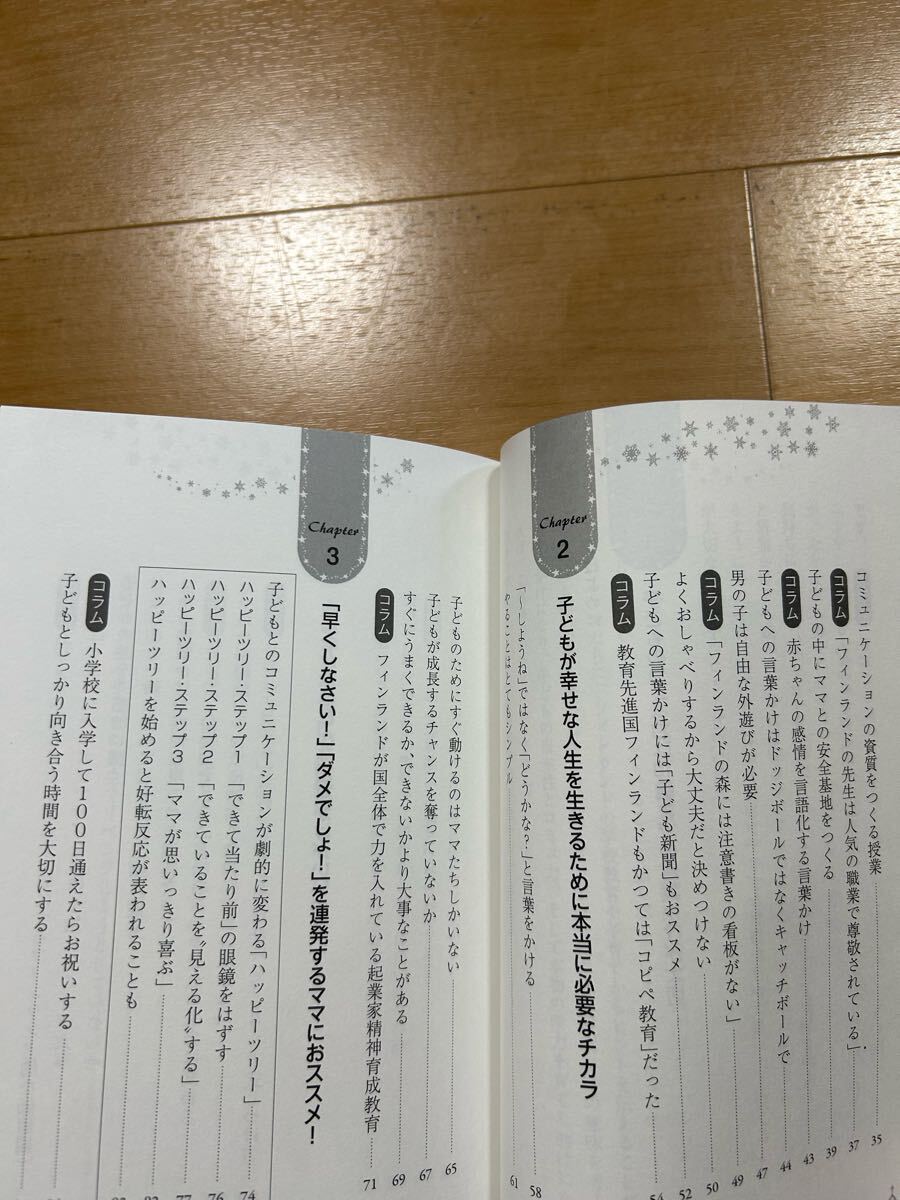 コミュニケーションの資質をつくる授業 35
コラム 「フィンランドの先生は人気の職業で尊敬されている」 37
子どもの中にママとの安全基地をつくる 39
コラム 赤ちゃんの感情を言語化する言葉かけ 43
子どもへの言葉かけはドッジボールではなくキャッチボールで 44
男の子は自由な外遊びが必要 47
コラム 「フィンランドの森には注意書きの看板がない」 49
よくおしゃべりするから大丈夫だと決めつけない 50
子どもへの言葉かけには「子ども新聞」もおススメ 52
コラム 教育先進国フィンランドもかつては「コピペ教育」だった 54
Chapter 2
子どもが幸せな人生を生きるために本当に必要なチカラ
「〜しようね」ではなく「どうかな?」と言葉をかける 58
やることはとてもシンプル 61
子どものためにすぐ動けるのはママたちしかいない 65
子どもが成長するチャンスを奪っていないか 67
すぐにうまくできるか、できないかより大事なことがある 69
コラム フィンランドが国全体で力を入れている起業家精神育成教育 71
Chapter 3
「早くしなさい!」「ダメでしょ!」を連発するママにおススメ!
子どもとのコミュニケーションが劇的に変わる「ハッピーツリー」 74
ハッピーツリー・ステップ1 「できて当たり前」の眼鏡をはずす 76
ハッピーツリー・ステップ2 「できていることを〝見える化〟する」 77
ハッピーツリー・ステップ3 「ママが思いっきり喜ぶ」
ハッピーツリーを始めると好転反応が表われることも
コラム 小学校に入学して100日通えたらお祝いする
子どもとしっかり向き合う時間を大切にする